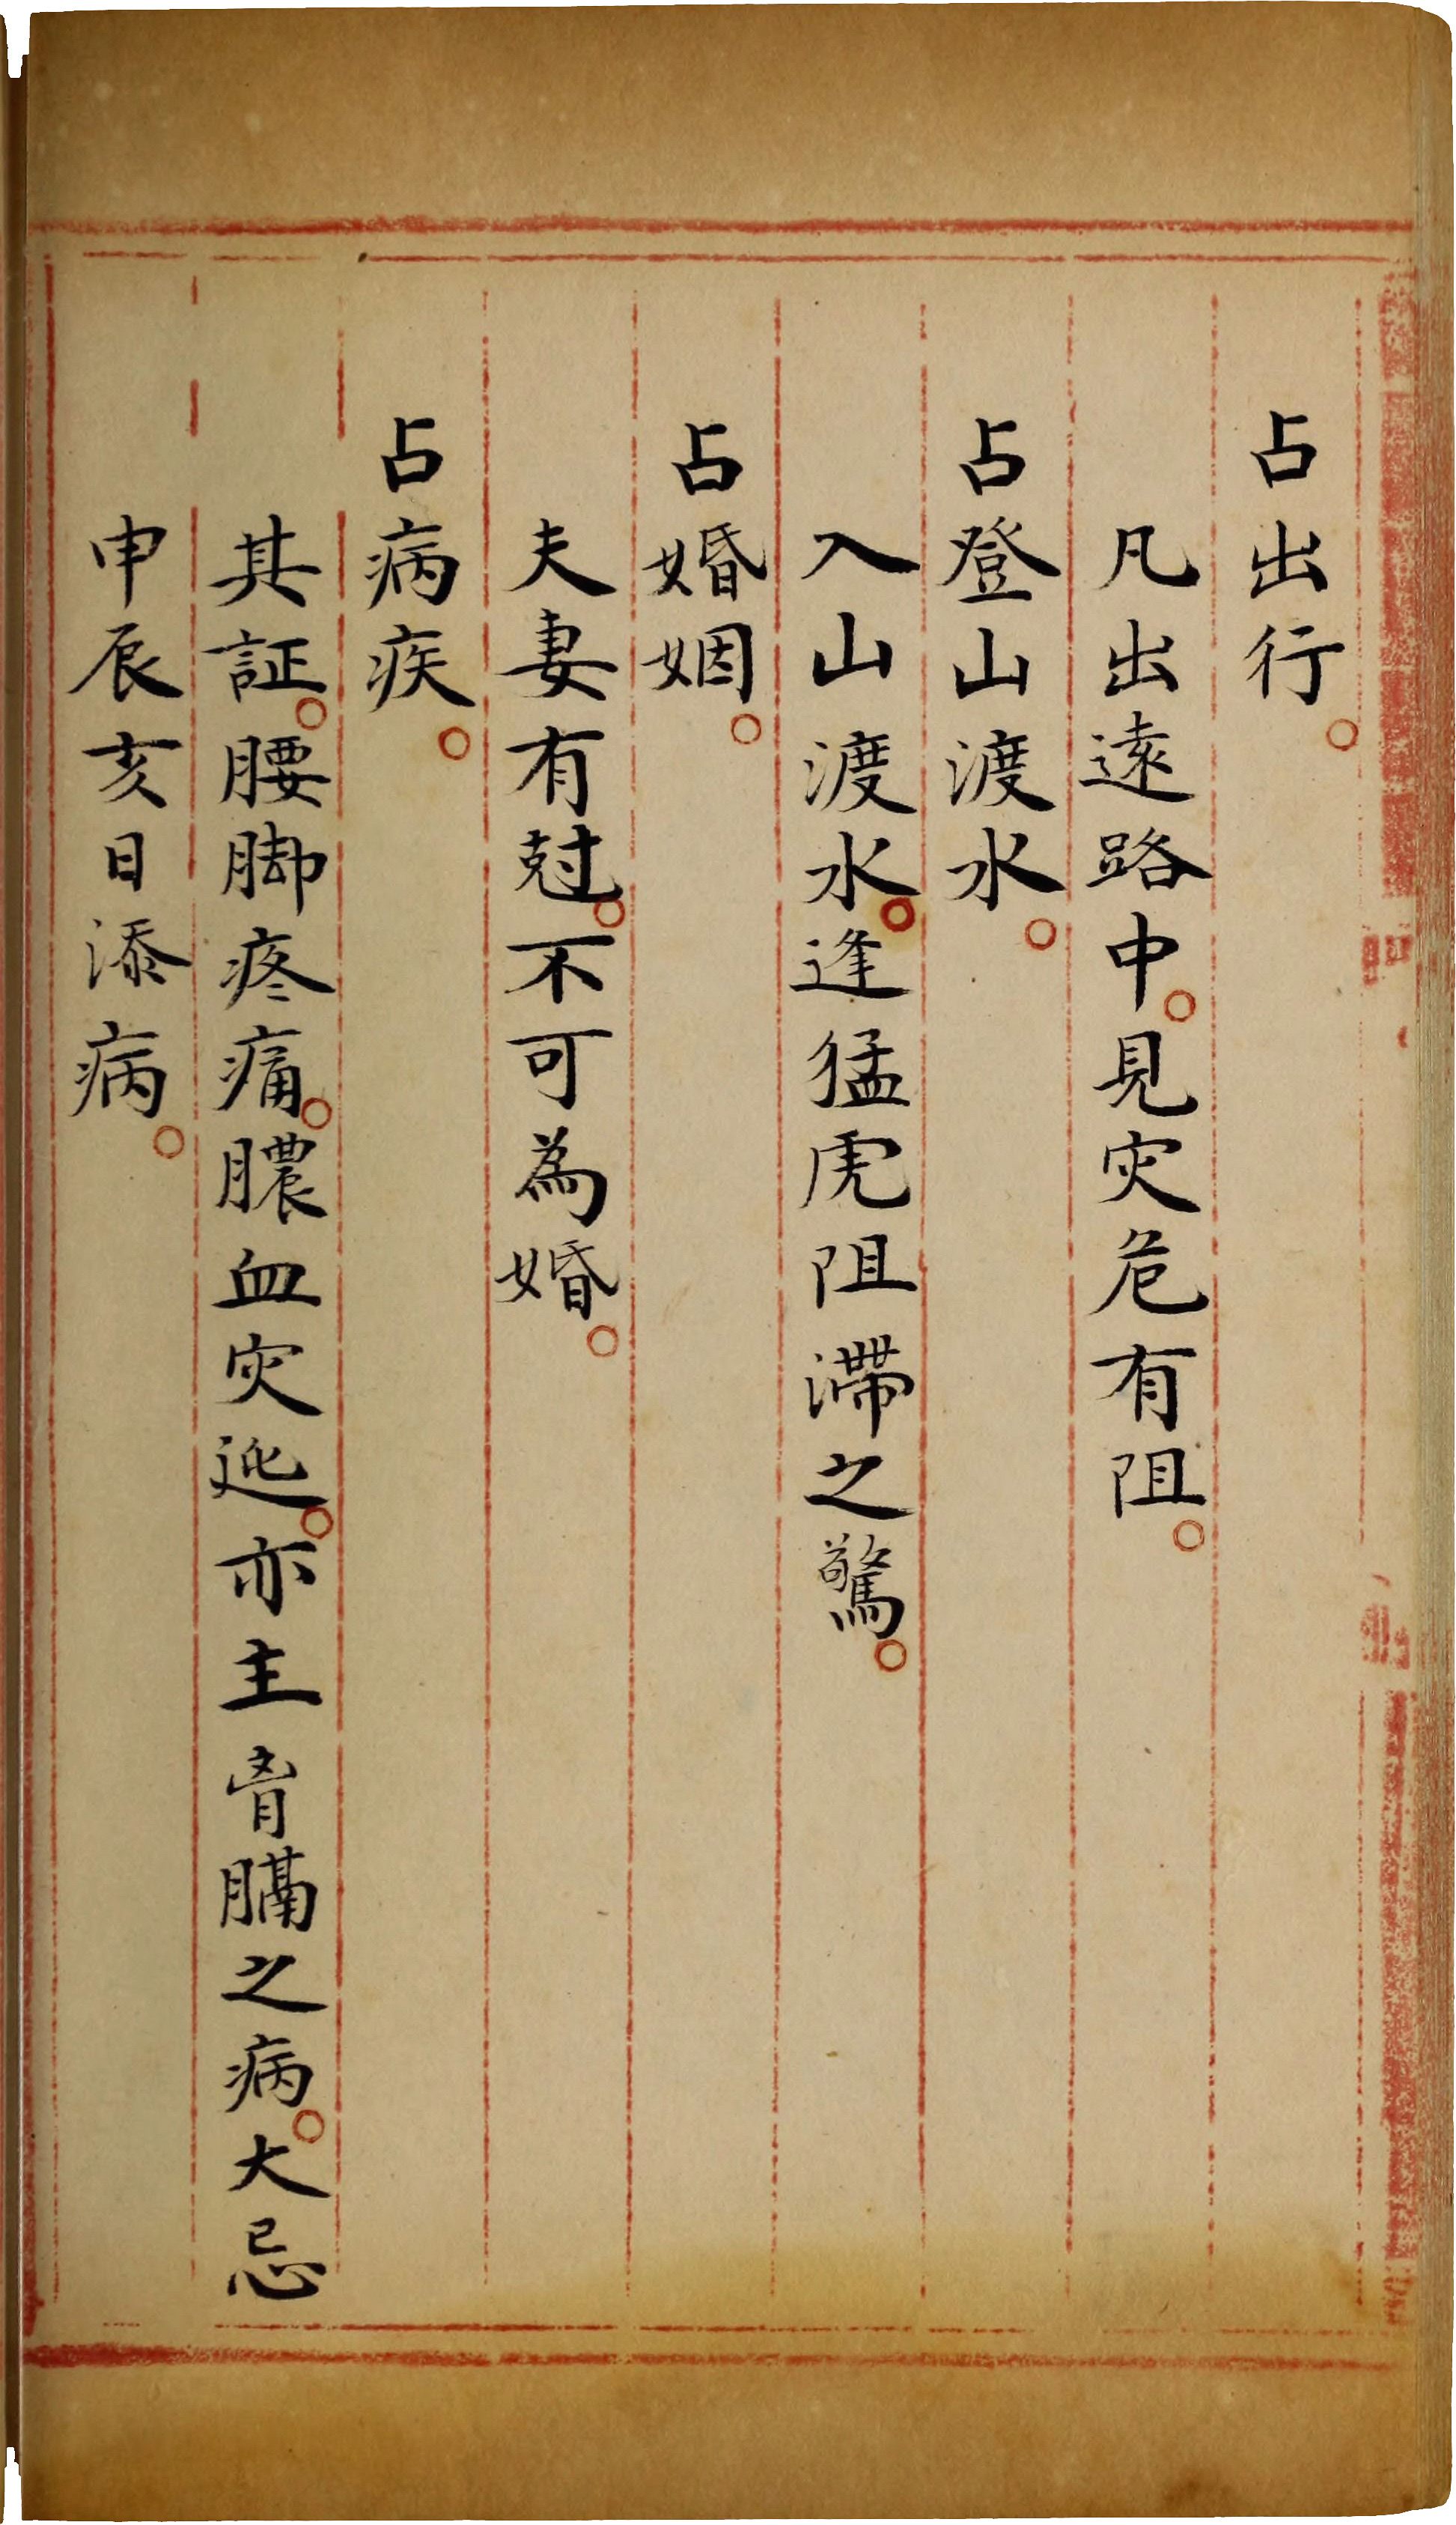 占出行。
凡出遠路中。見灾危有阻。
占登山渡水。
入山渡水。逢猛虎阻滯之驚。
占婚姻。
夫妻有尅。不可為婚。
占病疾。
其証。腰脚疼痛。膿血灾迍。亦主胷膈之病。大忌
申辰亥日添病。